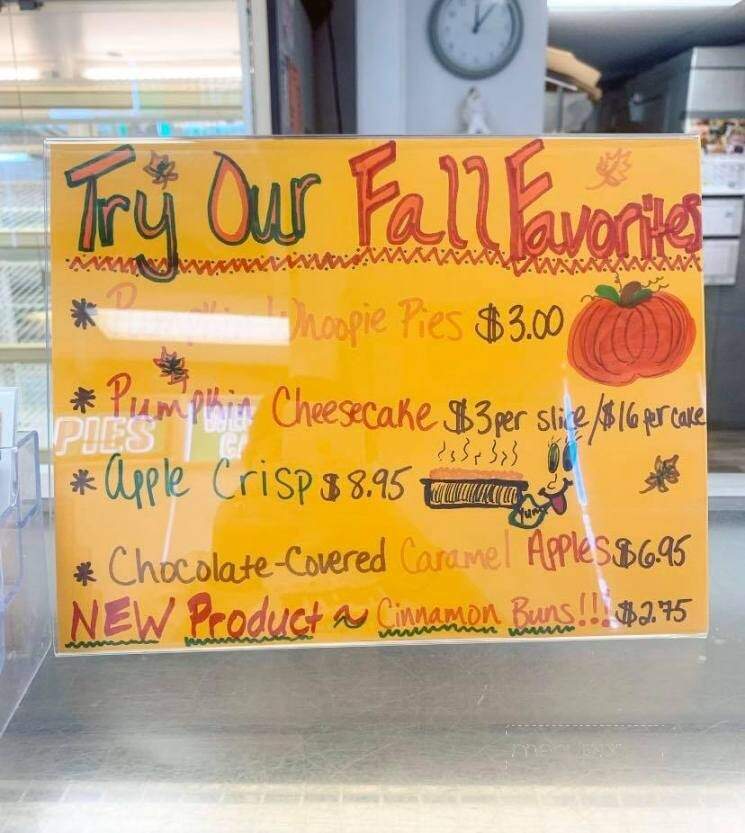 Try Our Fall Favorites
* Pumpkin Whoopie Pies $3.00
* Pumpkin Cheesecake $3 per slice/$16 per cake
PIES
* Apple Crisp $8.95
Yum
* Chocolate-Covered Caramel Apples $6.95
NEW Product ~ Cinnamon Buns!!! $2.75